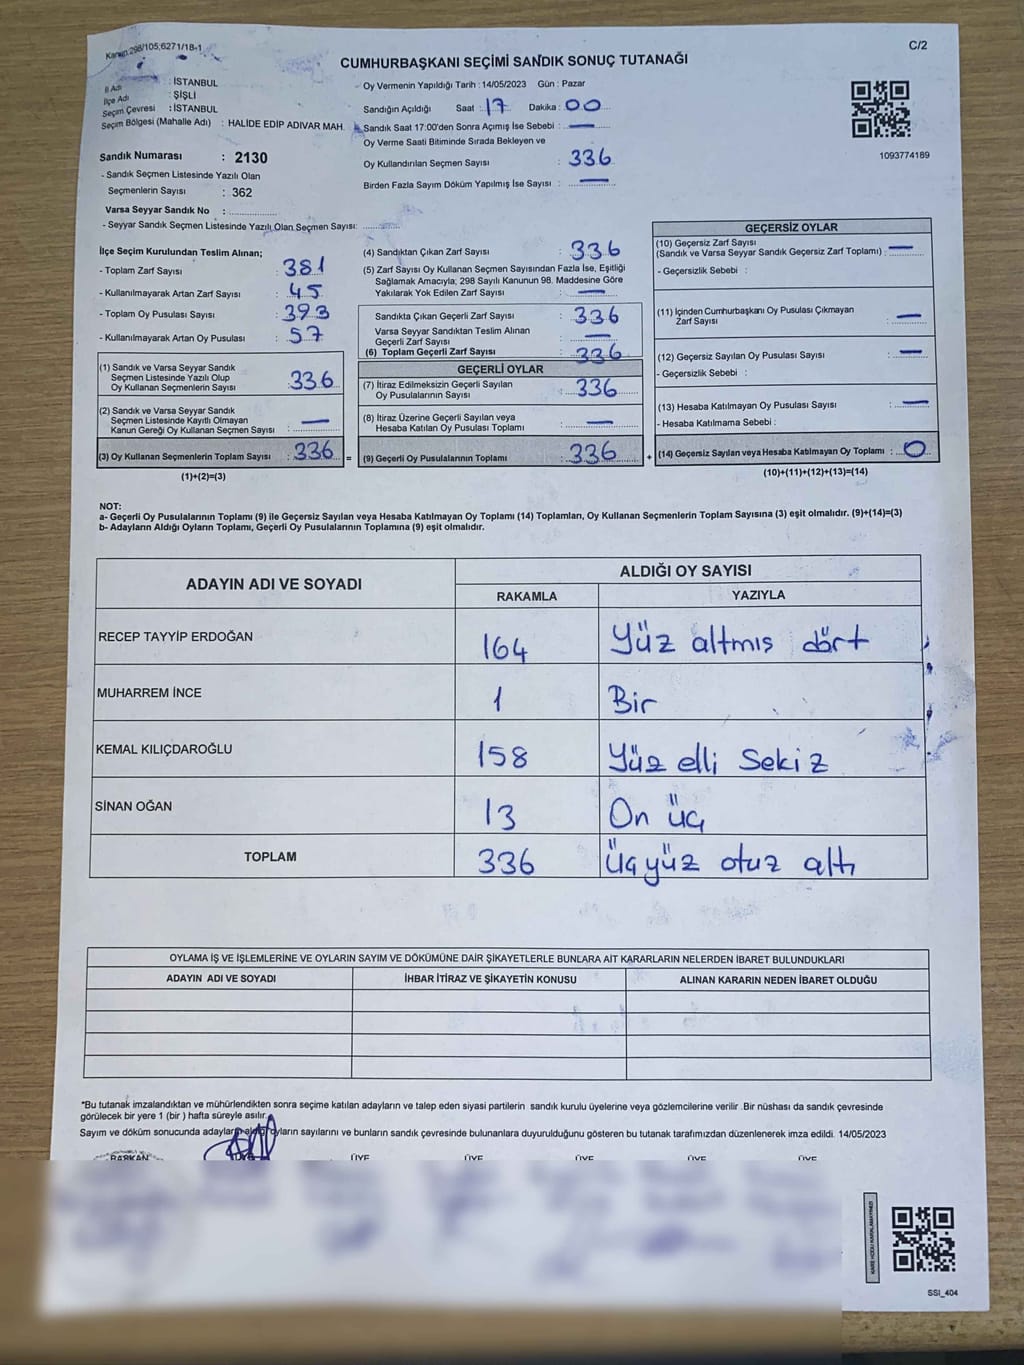 Kanun:298/105;6271/18-1
C/2
CUMHURBAŞKANI SEÇİMİ SANDIK SONUÇ TUTANAĞI
İl Adı : İSTANBUL
İlçe Adı : ŞİŞLİ
Seçim Çevresi : İSTANBUL
Seçim Bölgesi (Mahalle Adı) : HALİDE EDİP ADIVAR MAH.
Sandık Numarası : 2130
- Sandık Seçmen Listesinde Yazılı Olan
Seçmenlerin Sayısı : 362
Varsa Seyyar Sandık No :
- Seyyar Sandık Seçmen Listesinde Yazılı Olan Seçmen Sayısı:
Oy Vermenin Yapıldığı Tarih : 14/05/2023 Gün : Pazar
Sandığın Açıldığı Saat : 17 Dakika : 00
Sandık Saat 17:00'den Sonra Açımış İse Sebebi : —
Oy Verme Saati Bitiminde Sırada Bekleyen ve
Oy Kullandırılan Seçmen Sayısı : 336
Birden Fazla Sayım Döküm Yapılmış İse Sayısı : —
1093774189
İlçe Seçim Kurulundan Teslim Alınan;
- Toplam Zarf Sayısı : 381
- Kullanılmayarak Artan Zarf Sayısı : 45
- Toplam Oy Pusulası Sayısı : 393
- Kullanılmayarak Artan Oy Pusulası : 57
(1) Sandık ve Varsa Seyyar Sandık
Seçmen Listesinde Yazılı Olup
Oy Kullanan Seçmenlerin Sayısı : 336
(2) Sandık ve Varsa Seyyar Sandık
Seçmen Listesinde Kayıtlı Olmayan
Kanun Gereği Oy Kullanan Seçmen Sayısı : —
(3) Oy Kullanan Seçmenlerin Toplam Sayısı : 336
(1)+(2)=(3)
(4) Sandıktan Çıkan Zarf Sayısı : 336
(5) Zarf Sayısı Oy Kullanan Seçmen Sayısından Fazla İse, Eşitliği
Sağlamak Amacıyla; 298 Sayılı Kanunun 98. Maddesine Göre
Yakılarak Yok Edilen Zarf Sayısı : —
Sandıkta Çıkan Geçerli Zarf Sayısı : 336
Varsa Seyyar Sandıktan Teslim Alınan
Geçerli Zarf Sayısı : —
(6) Toplam Geçerli Zarf Sayısı : 336
GEÇERLİ OYLAR
(7) İtiraz Edilmeksizin Geçerli Sayılan
Oy Pusulalarının Sayısı : 336
(8) İtiraz Üzerine Geçerli Sayılan veya
Hesaba Katılan Oy Pusulası Toplamı : —
= (9) Geçerli Oy Pusulalarının Toplamı : 336
GEÇERSİZ OYLAR
(10) Geçersiz Zarf Sayısı
(Sandık ve Varsa Seyyar Sandık Geçersiz Zarf Toplamı) : —
- Geçersizlik Sebebi :
(11) İçinden Cumhurbaşkanı Oy Pusulası Çıkmayan
Zarf Sayısı : —
(12) Geçersiz Sayılan Oy Pusulası Sayısı : —
- Geçersizlik Sebebi :
(13) Hesaba Katılmayan Oy Pusulası Sayısı : —
- Hesaba Katılmama Sebebi :
+ (14) Geçersiz Sayılan veya Hesaba Katılmayan Oy Toplamı : 0
(10)+(11)+(12)+(13)=(14)
NOT:
a- Geçerli Oy Pusulalarının Toplamı (9) ile Geçersiz Sayılan veya Hesaba Katılmayan Oy Toplamı (14) Toplamları, Oy Kullanan Seçmenlerin Toplam Sayısına (3) eşit olmalıdır. (9)+(14)=(3)
b- Adayların Aldığı Oyların Toplamı, Geçerli Oy Pusulalarının Toplamına (9) eşit olmalıdır.
ADAYIN ADI VE SOYADI ALDIĞI OY SAYISI
RAKAMLA YAZIYLA
RECEP TAYYİP ERDOĞAN 164 Yüz altmıs dört
MUHARREM İNCE 1 Bir
KEMAL KILIÇDAROĞLU 158 Yüz elli Sekiz
SİNAN OĞAN 13 On üç
TOPLAM 336 Üçyüz otuz altı
OYLAMA İŞ VE İŞLEMLERİNE VE OYLARIN SAYIM VE DÖKÜMÜNE DAİR ŞİKAYETLERLE BUNLARA AİT KARARLARIN NELERDEN İBARET BULUNDUKLARI
ADAYIN ADI VE SOYADI İHBAR İTİRAZ VE ŞİKAYETİN KONUSU ALINAN KARARIN NEDEN İBARET OLDUĞU
*Bu tutanak imzalandıktan ve mühürlendikten sonra seçime katılan adayların ve talep eden siyasi partilerin sandık kurulu üyelerine veya gözlemcilerine verilir .Bir nüshası da sandık çevresinde
görülecek bir yere 1 (bir ) hafta süreyle asılır.
Sayım ve döküm sonucunda adayların aldığı oyların sayılarını ve bunların sandık çevresinde bulunanlara duyurulduğunu gösteren bu tutanak tarafımızdan düzenlenerek imza edildi. 14/05/2023
BAŞKAN ÜYE ÜYE ÜYE ÜYE ÜYE
SSI_404